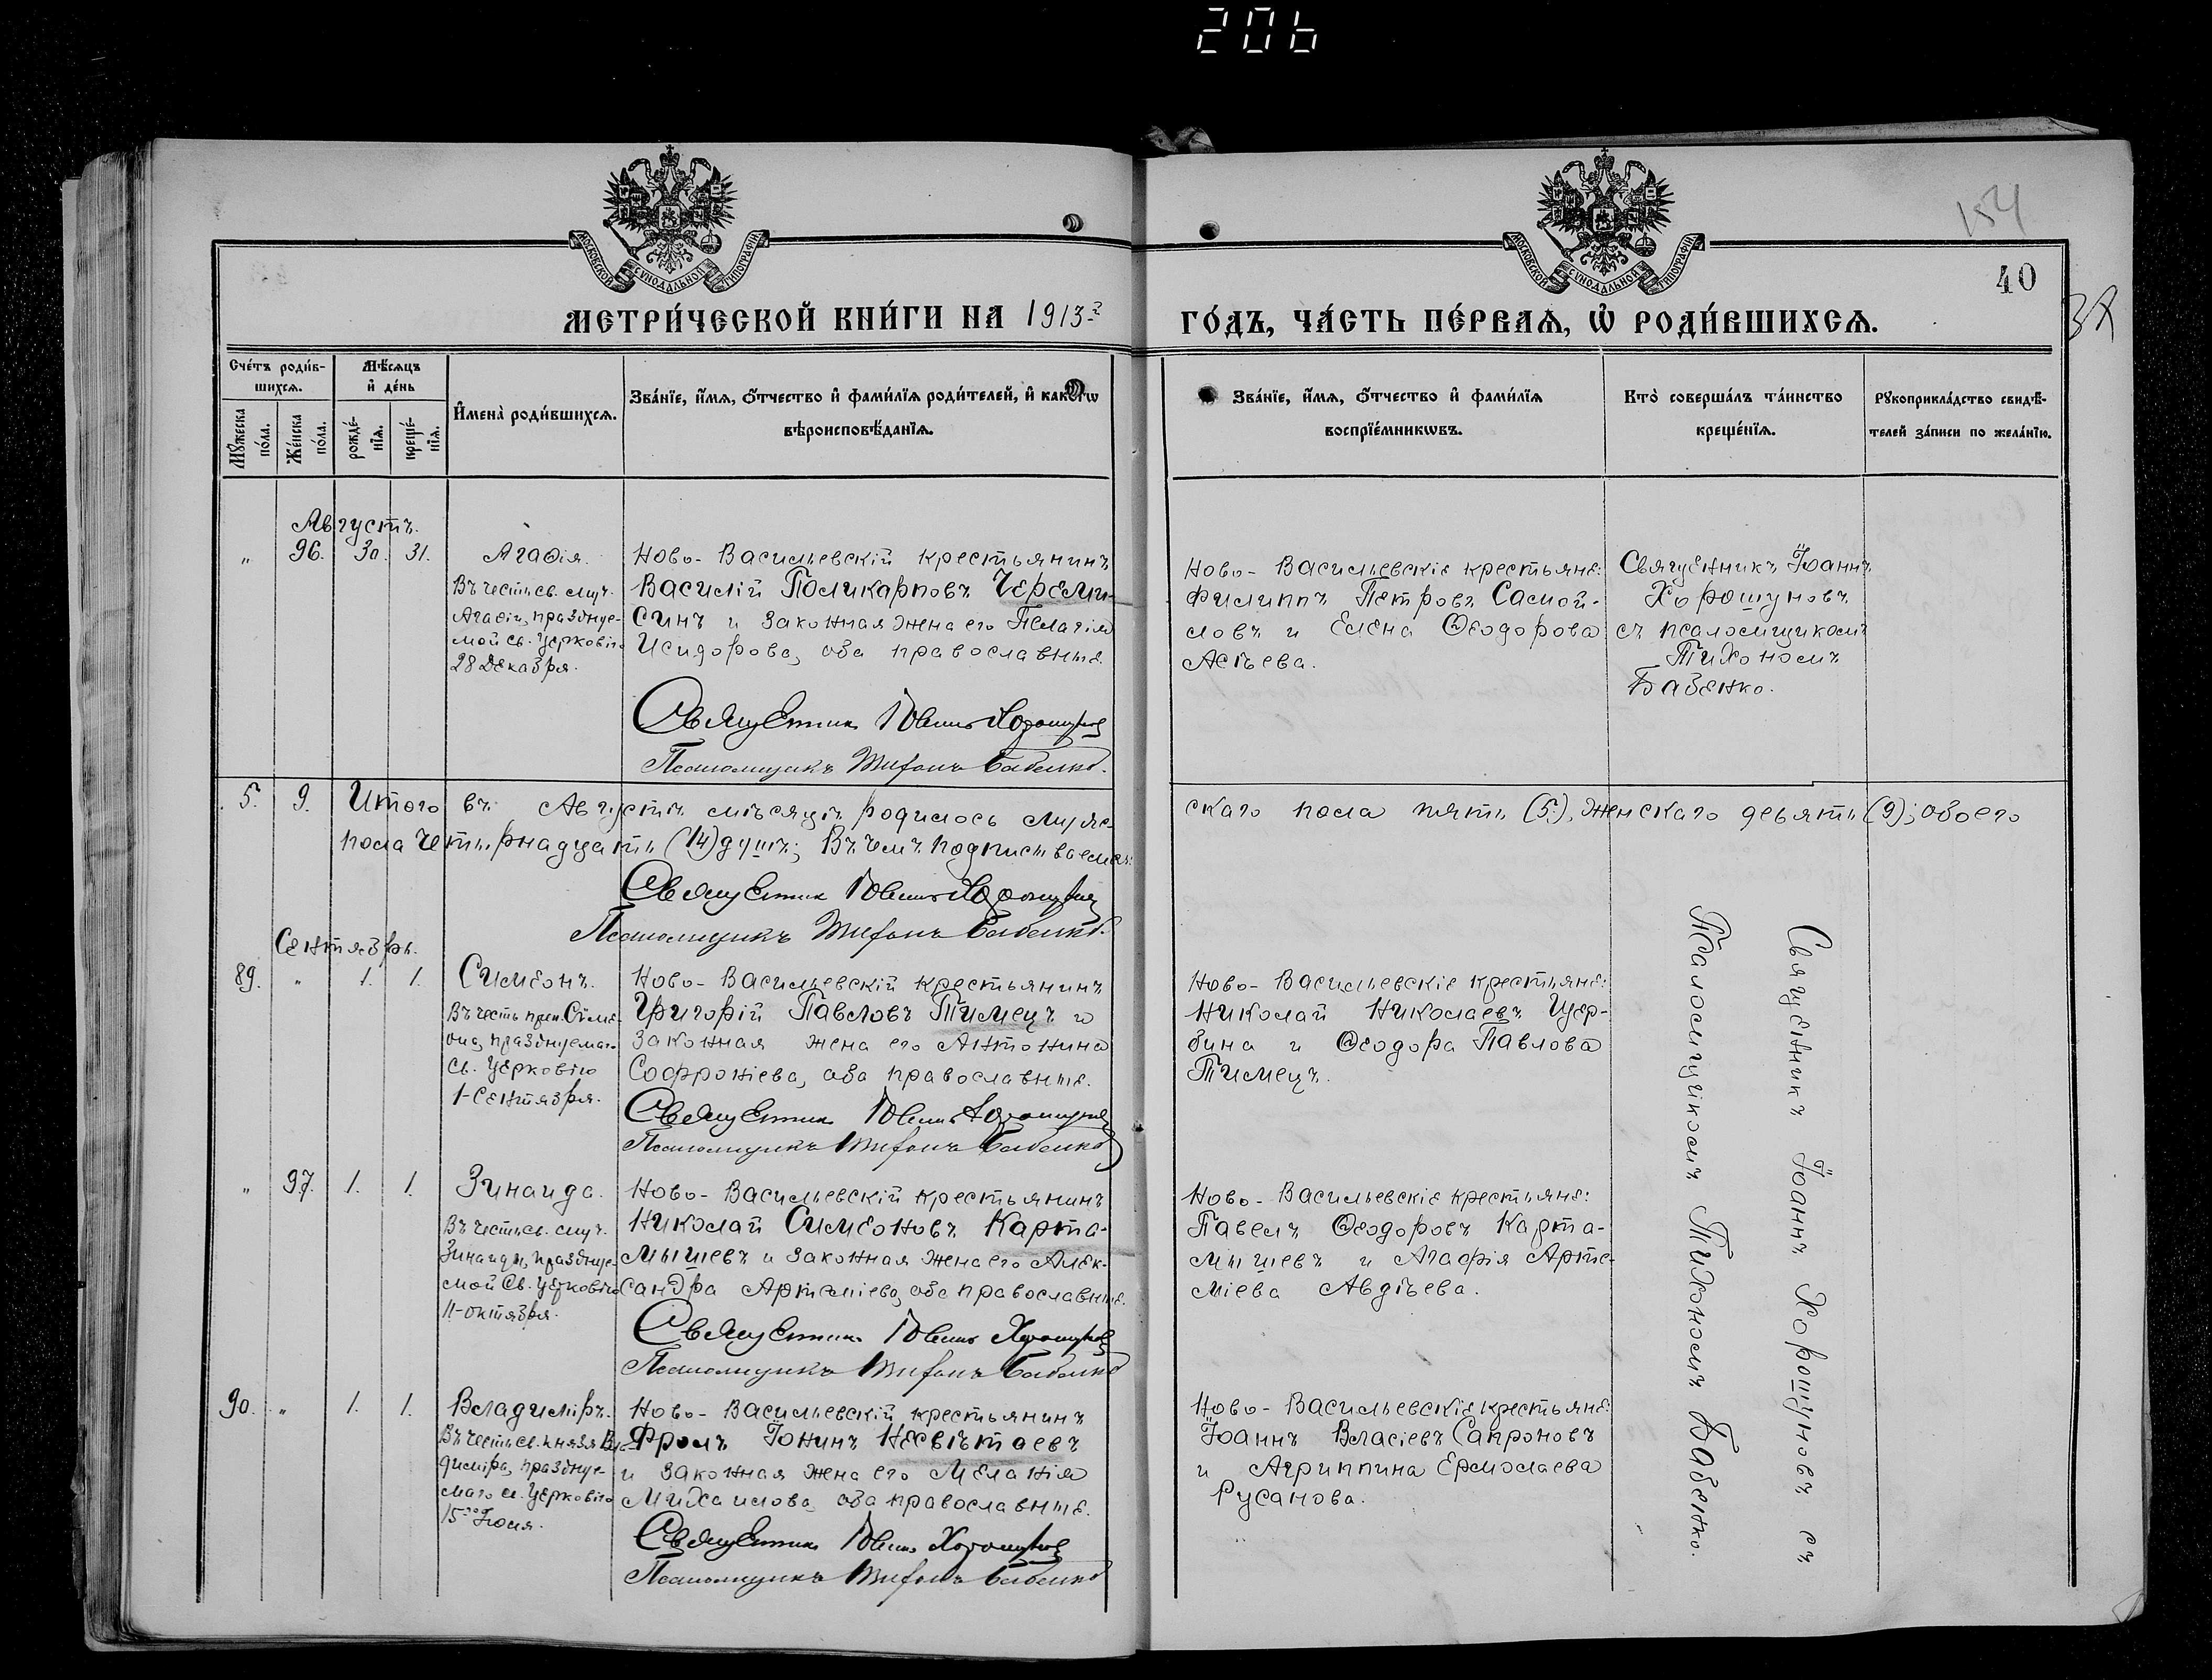 206
154
МОСКОВСКОЙ СѴНОДАЛЬНОЙ ТИПОГРАФІИ
МОСКОВСКОЙ СѴНОДАЛЬНОЙ ТИПОГРАФІИ
40
МЕТРИ́ЧЕСКОЙ КНИ́ГИ НА 1913 г
ГО́ДЪ, ЧА́СТЬ ПЕ́РВАѦ, Ѡ҆ РОДИ́ВШИХСѦ.
Сче́тъ роди́в-
шихсѧ.
Мꙋ́жеска по́ла.
Же́нска по́ла.
Мѣ́сѧцъ
и҆ де́нь
рожде́-
нїѧ.
креще́-
нїѧ.
И҆мена̀ роди́вшихсѧ.
Зва́нїе, и҆́мѧ, ѻ҆́тчество и҆ фами́лїѧ роди́телей, и҆ како́гѡ
вѣроисповѣ́данїѧ.
Зва́нїе, и҆́мѧ, ѻ҆́тчество и҆ фами́лїѧ
воспрїе́мникѡвъ.
Кто̀ соверша́лъ та́инство
креще́нїѧ.
Рꙋкоприкла́дство свидѣ́-
телей за́писи по жела́нїю.
Августъ.
" 96. 30. 31.
Агаѳія.
Въ честь св. муч.
Агаѳіи, праздпуе-
мой св. Церковію
28 декабря.
Ново-Васильевскій крестьянинъ
Василій Поликарповъ Череми-
синъ и законная жена его Пелагія
Исидорова, оба православные.
Священникъ Іоаннъ Хорошуновъ
Псаломщикъ Тихонъ Бабенко.
Ново-Васильевскіе крестьяне:
Филиппъ Петровъ Самой-
ловъ и Елена Ѳеодорова
Асѣева.
Священникъ Іоаннъ
Хорошуновъ
съ псаломщикомъ
Тихономъ
Бабенко.
5. 9. Итого въ Августѣ мѣсяцѣ родилось муже-
скаго пола пять (5), женскаго девять (9); обоего
пола четырнадцать (14) душъ; Въ чемъ подписываемся:
Священникъ Іоаннъ Хорошуновъ
Псаломщикъ Тихонъ Бабенко.
Сентябрь.
89. " 1. 1.
Симеонъ.
Въ честь преп. Симе-
она, празднуемаго
св. Церковію
1-Сентября.
Ново-Васильевскій крестьянинъ
Григорій Павловъ Тимецъ и
законная жена его Антонина
Софроніева, оба православные.
Священникъ Іоаннъ Хорошуновъ
Псаломщикъ Тихонъ Бабенко
Ново-Васильевскіе крестьяне:
Николай Николаевъ Щер-
бина и Ѳеодора Павлова
Тимецъ.
Священникъ Іоаннъ Хорошуновъ съ
Псаломщикомъ Тихономъ Бабенко.
" 97. 1. 1.
Зинаида.
Въ честь св. муч.
Зинаиды, праздпуе-
мой Св. Церковію
11-октября.
Ново-Васильевскій крестьянинъ
Николай Симеоновъ Карта-
мышевъ и законная жена его Алек-
сандра Артеміева, оба православные.
Священникъ Іоаннъ Хорошуновъ
Псаломщикъ Тихонъ Бабенко
Ново-Васильевскіе крестьяне:
Павелъ Ѳеодоровъ Карта-
мышевъ и Агафія Арте-
міева Авдѣева.
90. " 1. 1.
Владиміръ.
Въ честь св. князя Вла-
диміра, праздпуе-
маго св. Церковію
15го Іюля.
Ново-Васильевскій крестьянинъ
Фролъ Іонинъ Несвѣтаевъ
и законная жена его Меланія
Михаилова, оба православные.
Священникъ Іоаннъ Хорошуновъ
Псаломщикъ Тихонъ Бабенко
Ново-Васильевскіе крестьяне:
Іоаннъ Власіевъ Сапроновъ
и Агриппина Ермолаева
Русанова.